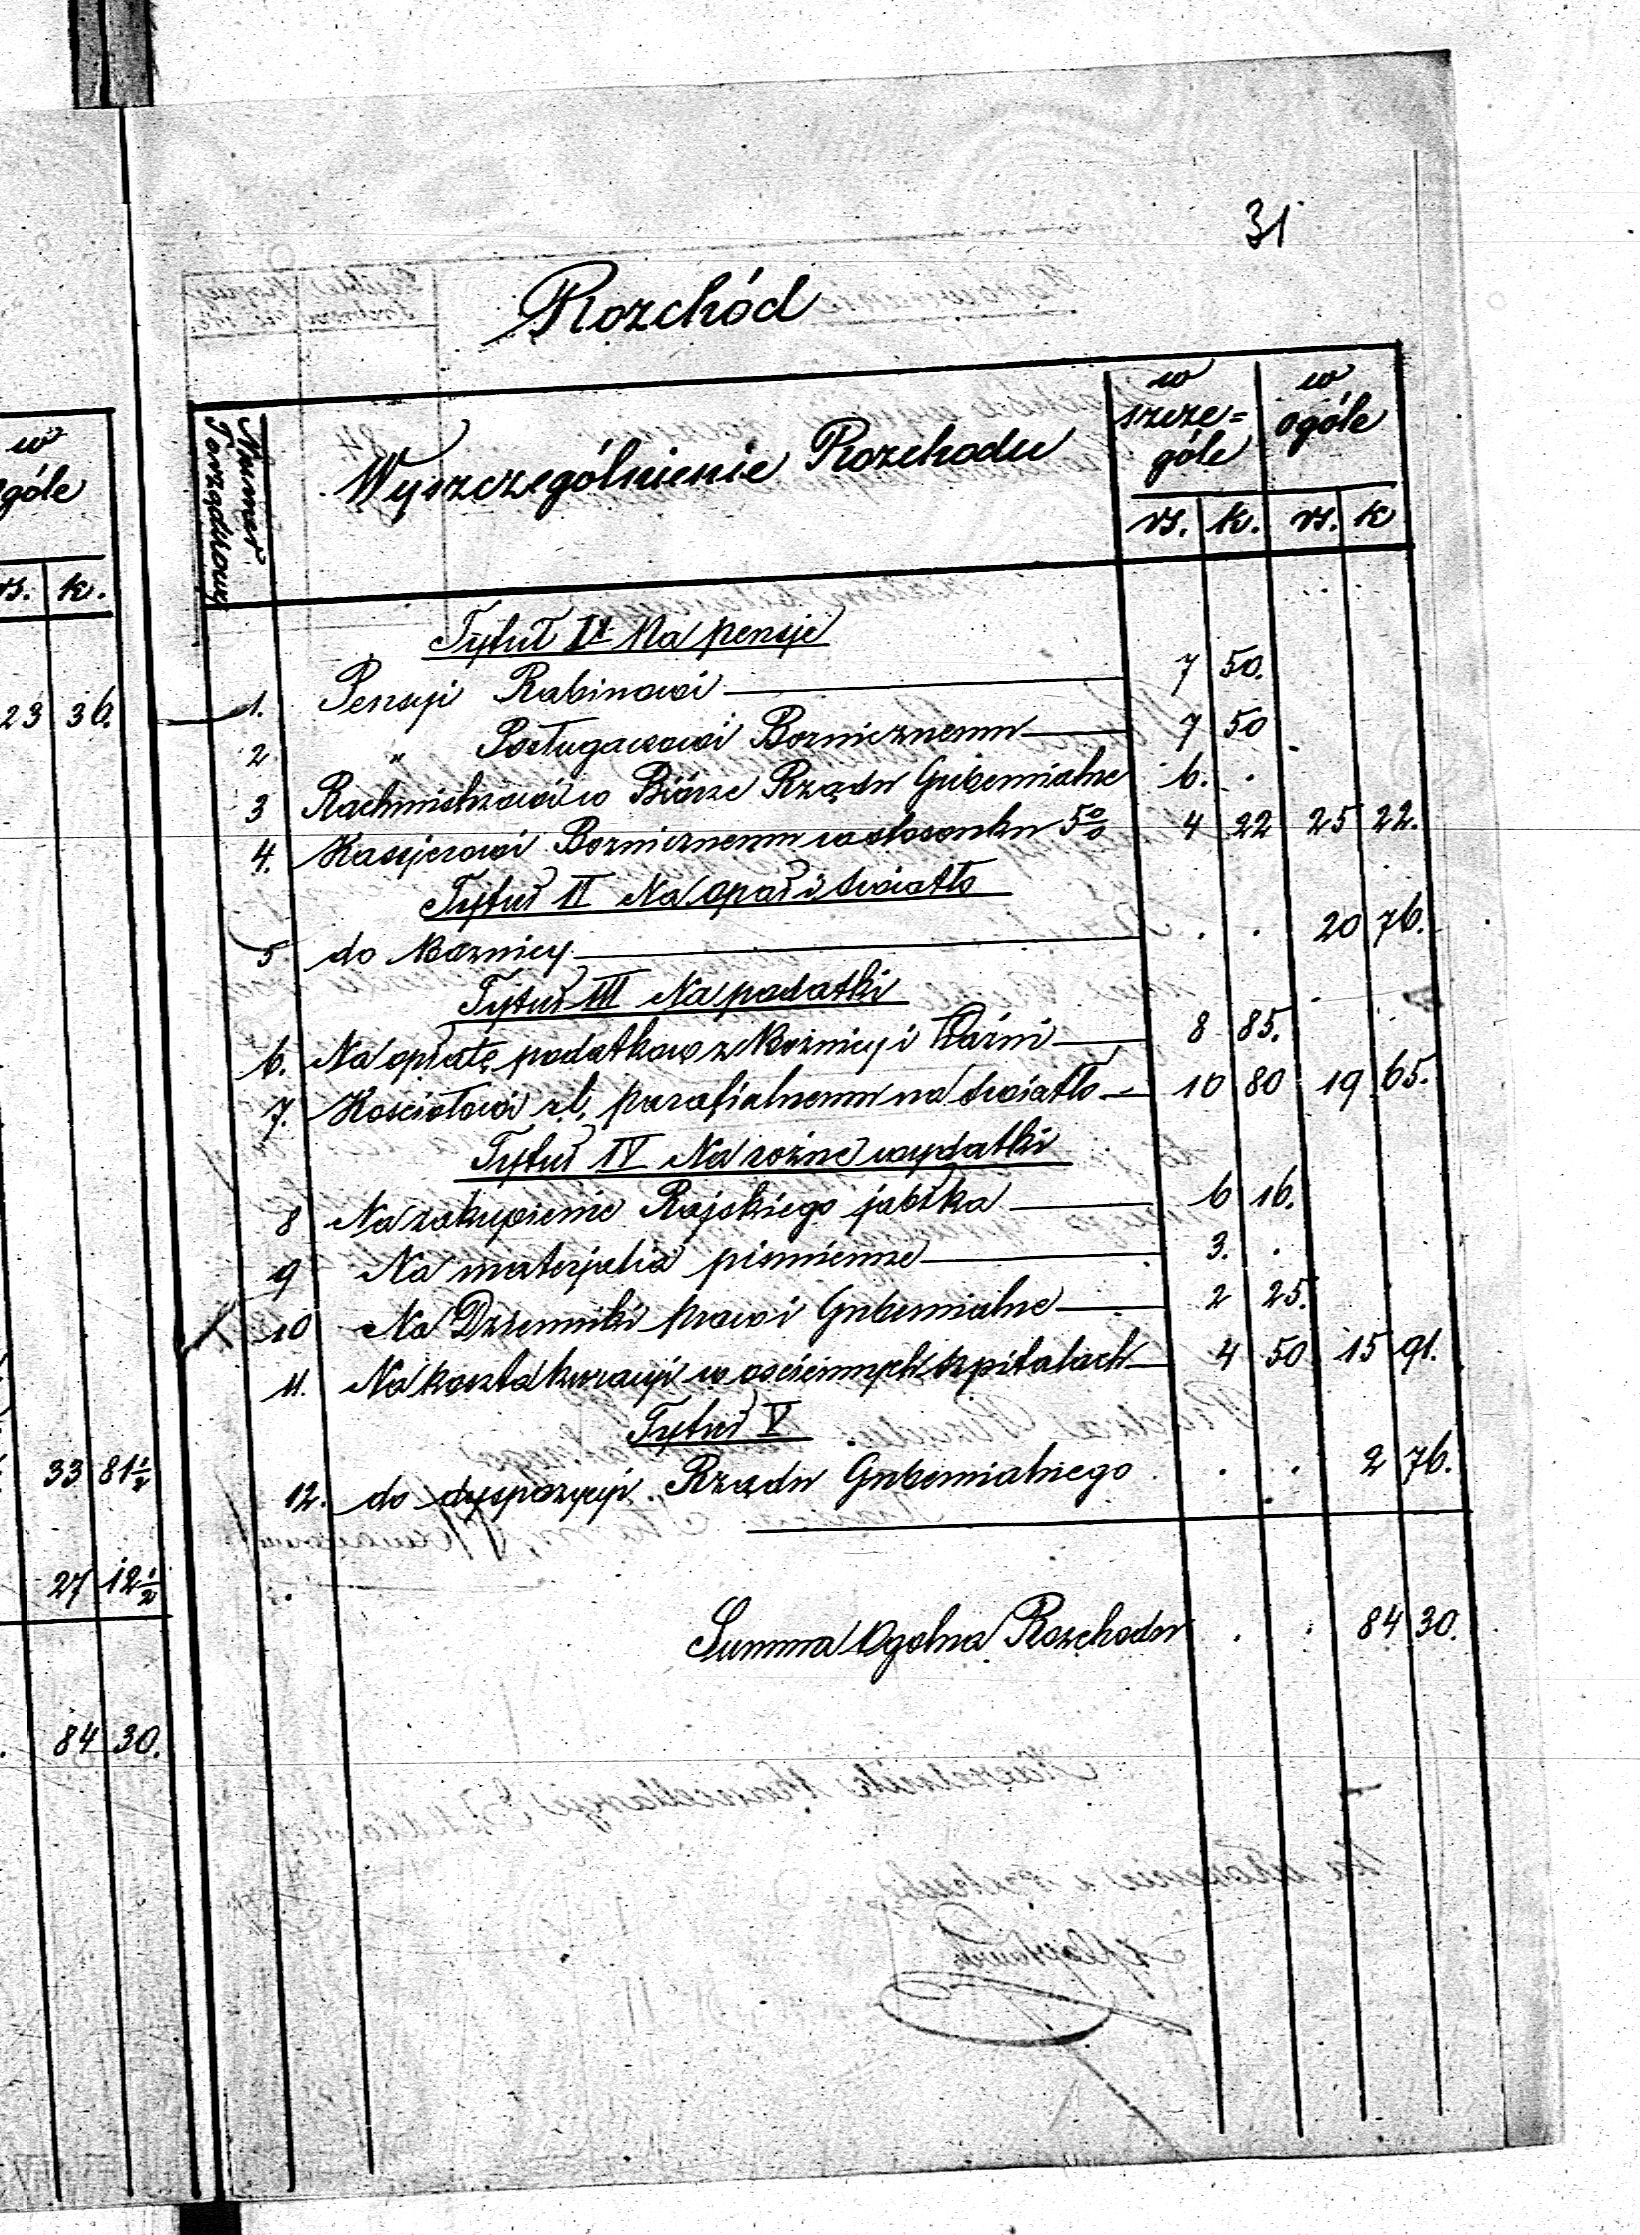 31
Rozchód
w
góle
rs. k.
23 36.
33 81 1/2
27 12 1/2
84 30.
Numer Porządkowy
Wyszczególnienie Rozchodu
w szcze=
góle
w
ogóle
rs. k. rs. k
Tytuł I Na pensje
1. Pensyi Rabinowi 7 50.
2 " Posługaczowi Boznicznemu 7 50
3 Rachmistrzowi w Biórze Rządu Gubernialne 6. .
4. Kasyerowi Boznicznemu w stosunku 5% 4 22 25 22.
Tytuł II Na opał i swiatło
5 do Boznicy . . 20 76.
Tytuł III Na podatki
6. Na opłatę podatkow z Boznicy i Łaźni 8 85.
7. Kosciołowi r.l. parafialnemu na swiatło 10 80 19 65.
Tytuł IV Na rożne wydatki
8 Na zakupienie Rajskiego jabłka 6 16.
9 Na materjalia pismienne 3. .
10 Na Dzienniki praw i Gubernialne 2 25.
11. Na koszta kuracyi w osciennych szpitalach 4 50 15 91.
Tytuł V
12. do dyspozycyi Rządu Gubernialnego . . 2 76.
Summa Ogolna Rozchodu . . 84 30.